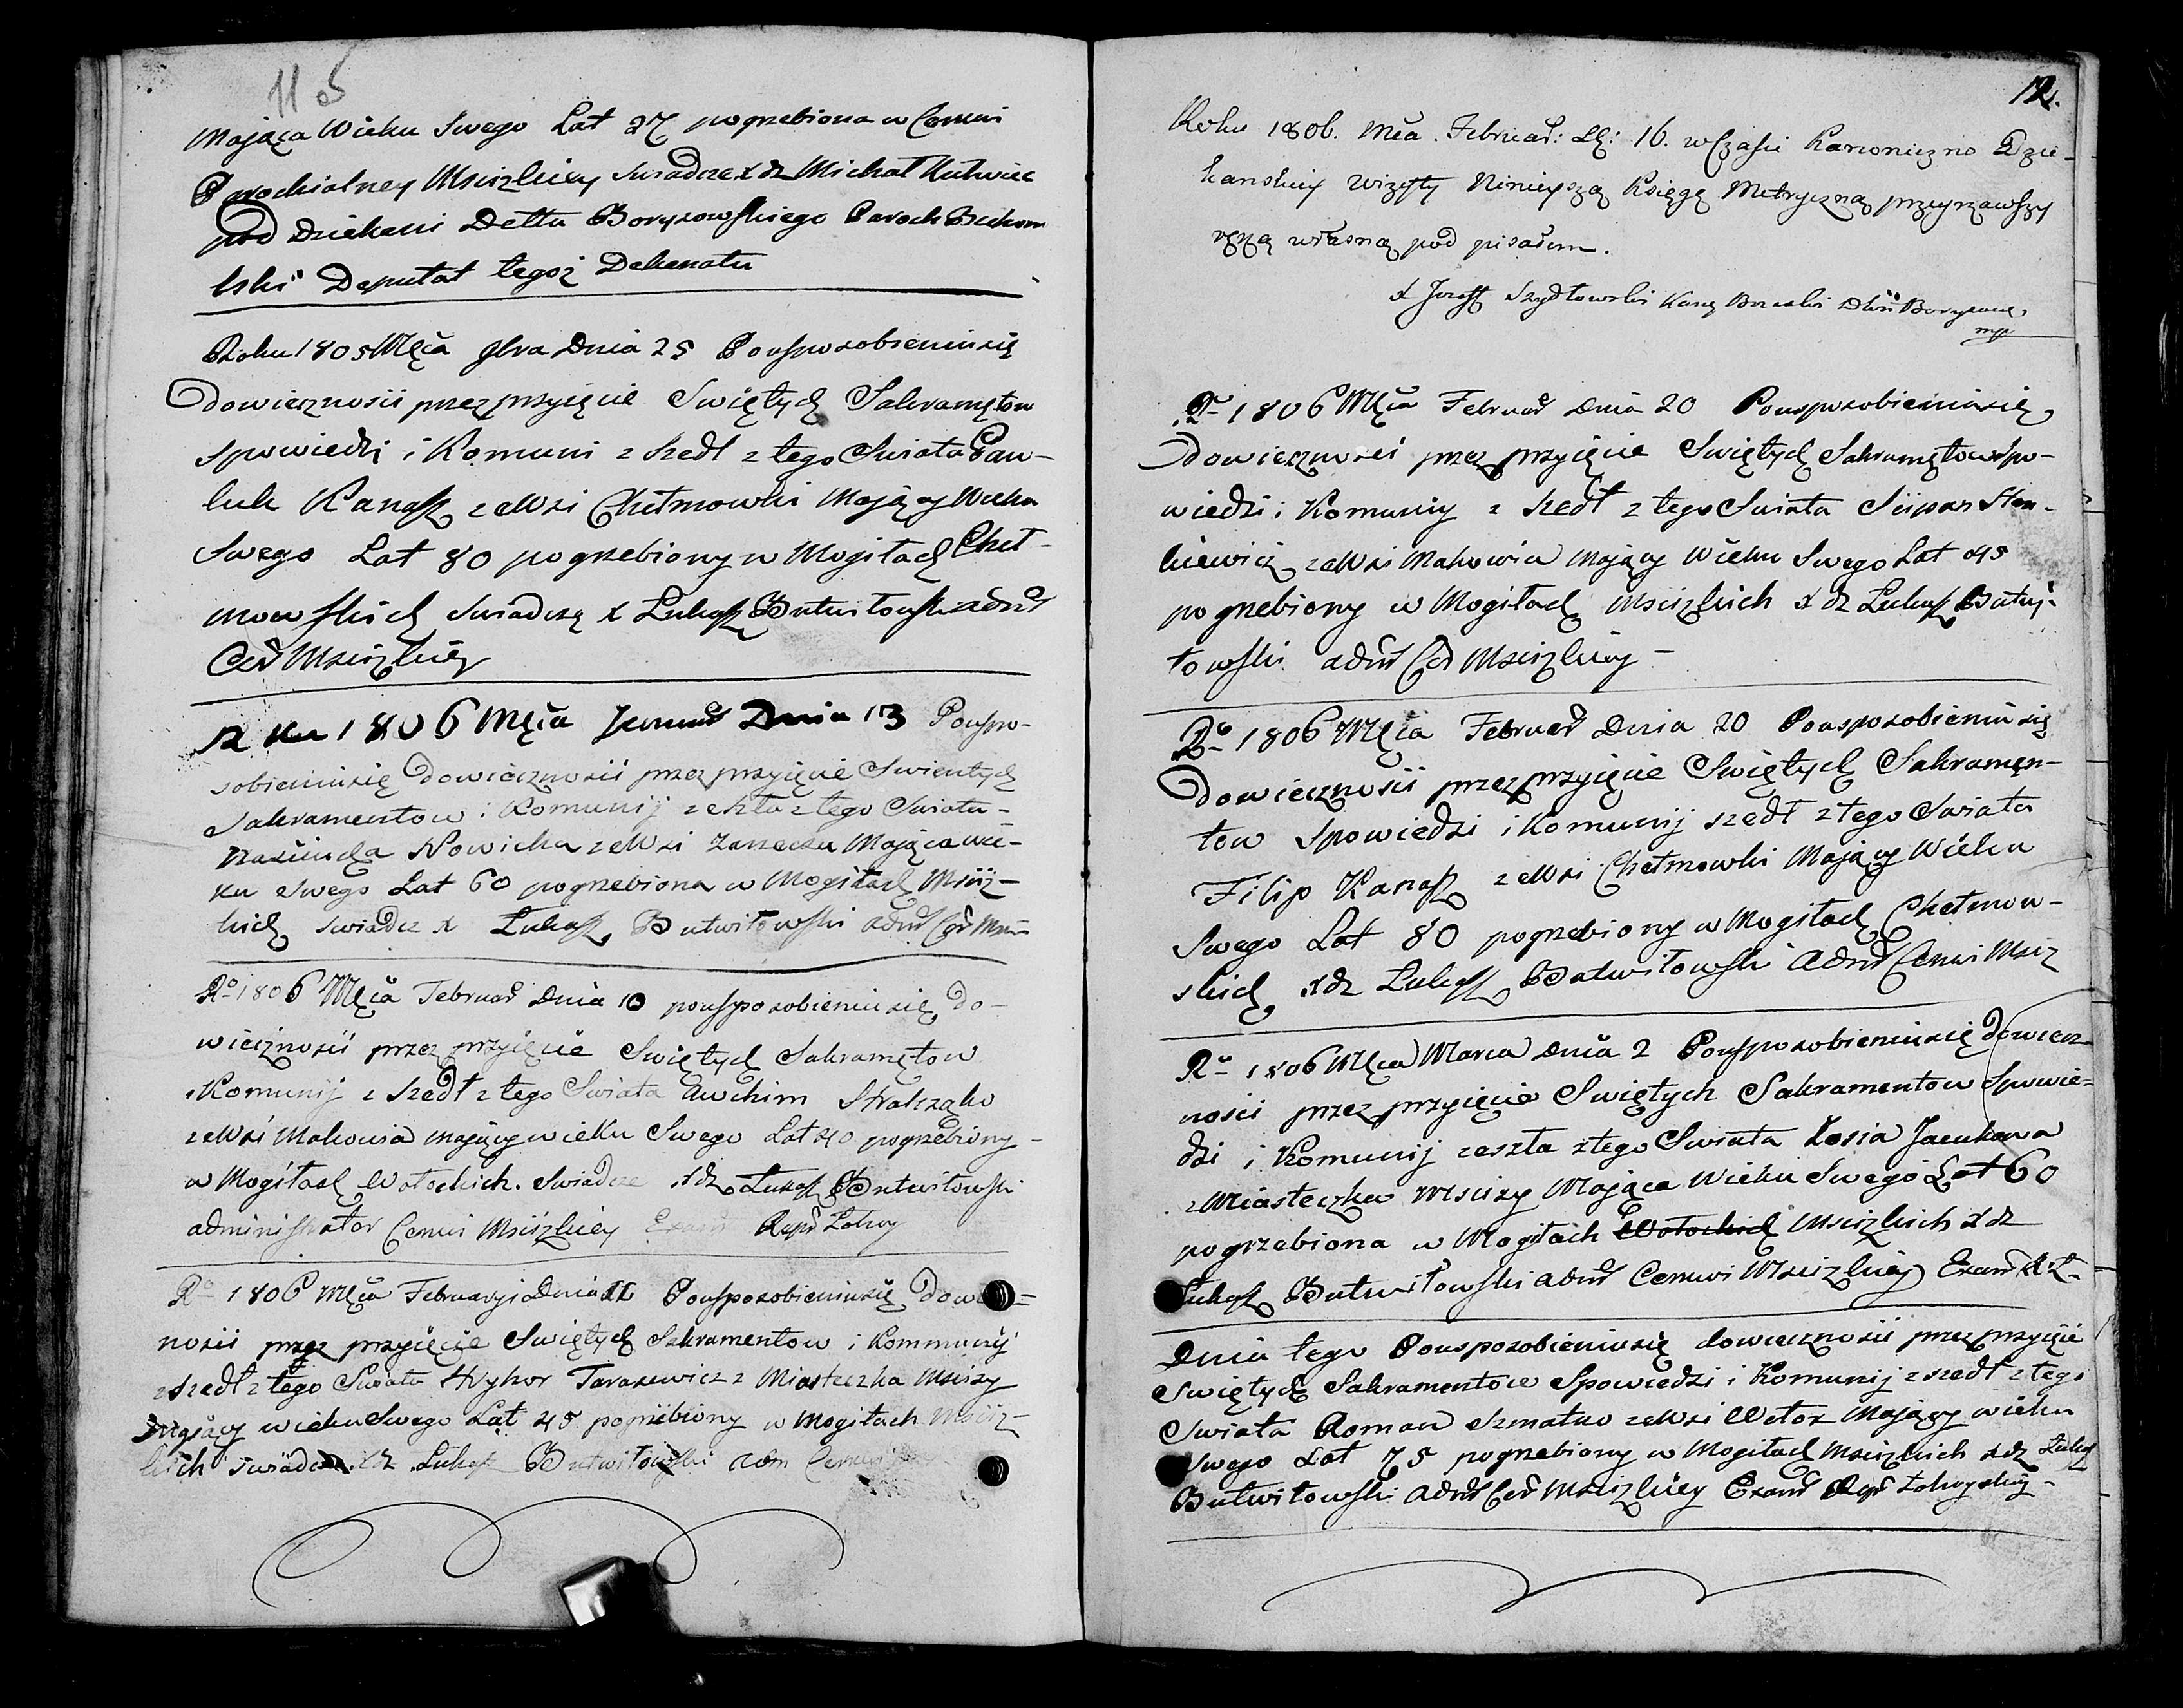 11 об
Mająca Wieku Swego Lat 27 pogrzebiona w Cerkwi
Parochialney Msciżkiey swiadcze x dz Michał Kutwiec
pod Dziekani Dettu Boryzowskiego Paroch
Deputat tegoż Dekanatu
Roku 1805 Męca gbra Dnia 25 Pousposobieniusię
Dowiecznosii przez przyięcie Swiętych Sakramętow
spowiedzi i Komuni z szedł z tego Swiata Paw-
luk Kanasz zeWsi Chełmowki Maiący Wieku
Swego Lat 80 pogrzebiony w Mogiłach Cheł-
mowskich Swiadczą x Łukasz Butwiłowski admr
Cer Msciżkiey
R ku 1806 Męca Januar Dnia 13 Pouspo-
sobieniusię Dowiecznosii przez przyięcie Swientych
Sakramentow i Komunij zeszła z tego Swiata-
Nowicka zeWsi Zarzecza Mająca wie-
ku Swego Lat 60 pogrzebiona w Mogiłach Msciż-
kich swiadcz x Łukasz Butwiłowski admr Cer Msci
Rº 1806 Męca Februar Dnia 10 pousposobieniusię do-
wiecznosii przez przyięcie Swiętych Sakramętow
i Komunij z szedł z tego Swiata Awchim
zeWsi Makowia mający wieku Swego Lat 40 pogrzebiony-
w Mogiłach Wołockich. Swiadcze x dz Łukasz Butwiłowski
administrator Cerkwi Msciżkiey
Rº 1806 Męca Februaryi Dnia 11 Pousposobieniusię Dowiecz=
nosii przez przyięcie Swiętych Sakramentow i Kommunij
z szedł z tego Swiata Hryhor Tarasewicz z Miasteczka Msciży
Mający wieku Swego Lat 45 pogrzebiony w Mogiłach Msciż-
kich swiadcze x dz Łukasz Butwiłowski Adm Cerkwi
12.
Roku 1806. Mca Februar: D: 16. w Czasie Kanoniczno Dzie-
kanskiey Wizyty Ninieyszą Księgę Metryczną przeyrzawszy
ręką własną pod pisałem.
x Jozeff Szydłowski Kan Brzeski Dkń Boryzows
mp
Rº 1806 Męca Februar Dnia 20 Pousposobieniusię
Dowiecznosii przez przyięcie Swiętych Sakramętow Spo-
wiedzi i Komuniy z szedł z tego Swiata
zeWsi Makowia Mający Wieku Swego Lat 45
pogrzebiony w Mogiłach Msciżkich x dz Łukasz Butwi-
łowski admr Cer Msciżkiey-
Rº 1806 Męca Februar Dnia 20 Pousposobieniusię
Dowiecznosii przez przyięcie Swiętych Sakramęn-
tow Spowiedzi i Komunij szedł z tego Swiata
Filip Kanasz zeWsi Chełmowki Mający Wieku
Swego Lat 80 pogrzebiony w Mogiłach Chełmow-
skich x dz Łukasz Butwiłowski Admr Cerkwi Msciż
Rº 1806 Męca Marca Dnia 2 Pousposobieniusię dowiecz-
nosci przez przyięcie Swiętych Sakramentow Spowie=
dzi i Komunij zeszła z tego Swiata Zosia Jacukowa
z Miasteczka Msciży Mająca Wieku Swego Lat 60
pogrzebiona w Mogiłach Wołockich Msciżkich x dz
Łukasz Butwiłowski admr Cerkwi Msciżkiey
Dnia tego Pousposobieniusię dowiecznosii przez przyięcie
Swiętych Sakramentow Spowiedzi i Komunij z szedł z tego
Swiata Roman Szmatko zeWsi Wołok Mający wieku
Swego Lat 75 pogrzebiony w Mogiłach Msciżkich x dz Łukasz
Butwiłowski Admr Cer Msciżkiey